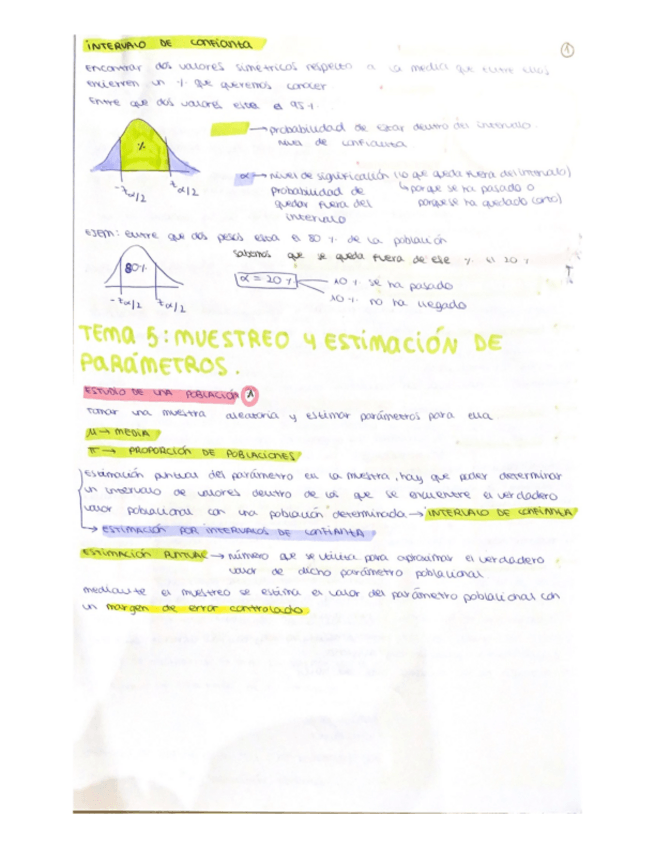 INTERVALO DE CONFIANZA
1
Encontrar dos valores simétricos respecto a la media que entre ellos
encierren un % que queremos conocer
Entre que dos valores esta el 95%
→ probabilidad de estar dentro del intervalo.
Nivel de confianza
%
-zα/2
zα/2
α → nivel de significación (lo que queda fuera del intervalo)
probabilidad de quedar fuera del intervalo
↳ porque se ha pasado o porque se ha quedado corto)
EJEM: entre que dos pesos esta el 80% de la población
sabemos que se queda fuera de ese % el 20%
80%
α = 20%
10% se ha pasado
10% no ha llegado
-zα/2
zα/2
TEMA 5: MUESTREO Y ESTIMACIÓN DE
PARÁMETROS.
ESTUDIO DE UNA POBLACIÓN 1
Tomar una muestra aleatoria y estimar parámetros para ella
μ → MEDIA
π → PROPORCIÓN DE POBLACIONES
Estimación puntual del parámetro en la muestra, hay que poder determinar
un intervalo de valores dentro de los que se encuentre el verdadero
valor poblacional con una población determinada → INTERVALO DE CONFIANZA
→ ESTIMACIÓN POR INTERVALOS DE CONFIANZA
ESTIMACIÓN PUNTUAL → número que se utiliza para aproximar el verdadero
valor de dicho parámetro poblacional
mediante el muestreo se estima el valor del parámetro poblacional con
un margen de error controlado